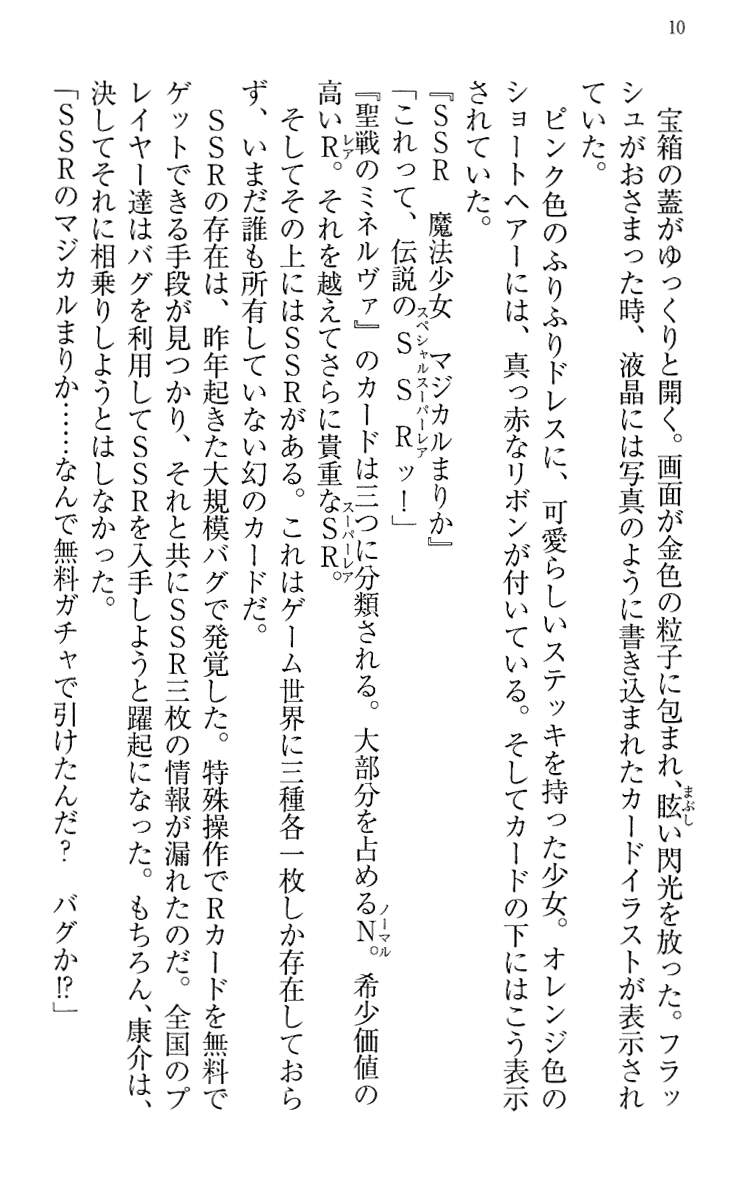 10
　宝箱の蓋がゆっくりと開く。画面が金色の粒子に包まれ、眩い閃光を放った。フラッ
シュがおさまった時、液晶には写真のように書き込まれたカードイラストが表示され
ていた。
　ピンク色のふりふりドレスに、可愛らしいステッキを持った少女。オレンジ色の
ショートヘアーには、真っ赤なリボンが付いている。そしてカードの下にはこう表示
されていた。
『ＳＳＲ　魔法少女　マジカルまりか』
「これって、伝説のＳＳＲッ！」
『聖戦のミネルヴァ』のカードは三つに分類される。大部分を占めるＮ。希少価値の
高いＲ。それを越えてさらに貴重なＳＲ。
　そしてその上にはＳＳＲがある。これはゲーム世界に三種各一枚しか存在しておら
ず、いまだ誰も所有していない幻のカードだ。
　ＳＳＲの存在は、昨年起きた大規模バグで発覚した。特殊操作でＲカードを無料で
ゲットできる手段が見つかり、それと共にＳＳＲ三枚の情報が漏れたのだ。全国のプ
レイヤー達はバグを利用してＳＳＲを入手しようと躍起になった。もちろん、康介は、
決してそれに相乗りしようとはしなかった。
「ＳＳＲのマジカルまりか……なんで無料ガチャで引けたんだ？　バグか⁉」
まぶし
スペシャルスーパーレア
ノーマル
レア
スーパーレア